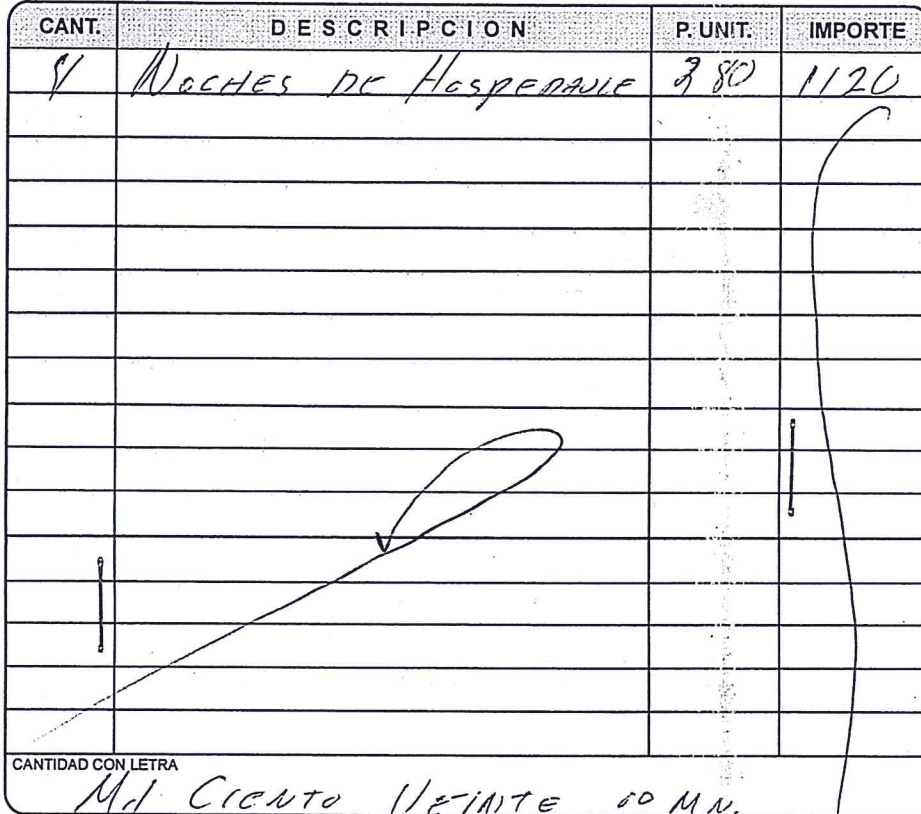 CANT. DESCRIPCION P. UNIT. IMPORTE
4 NOCHES DE HOSPEDAJE 280 1120
CANTIDAD CON LETRA
Mil CIENTO VEINTE 00 M.N.